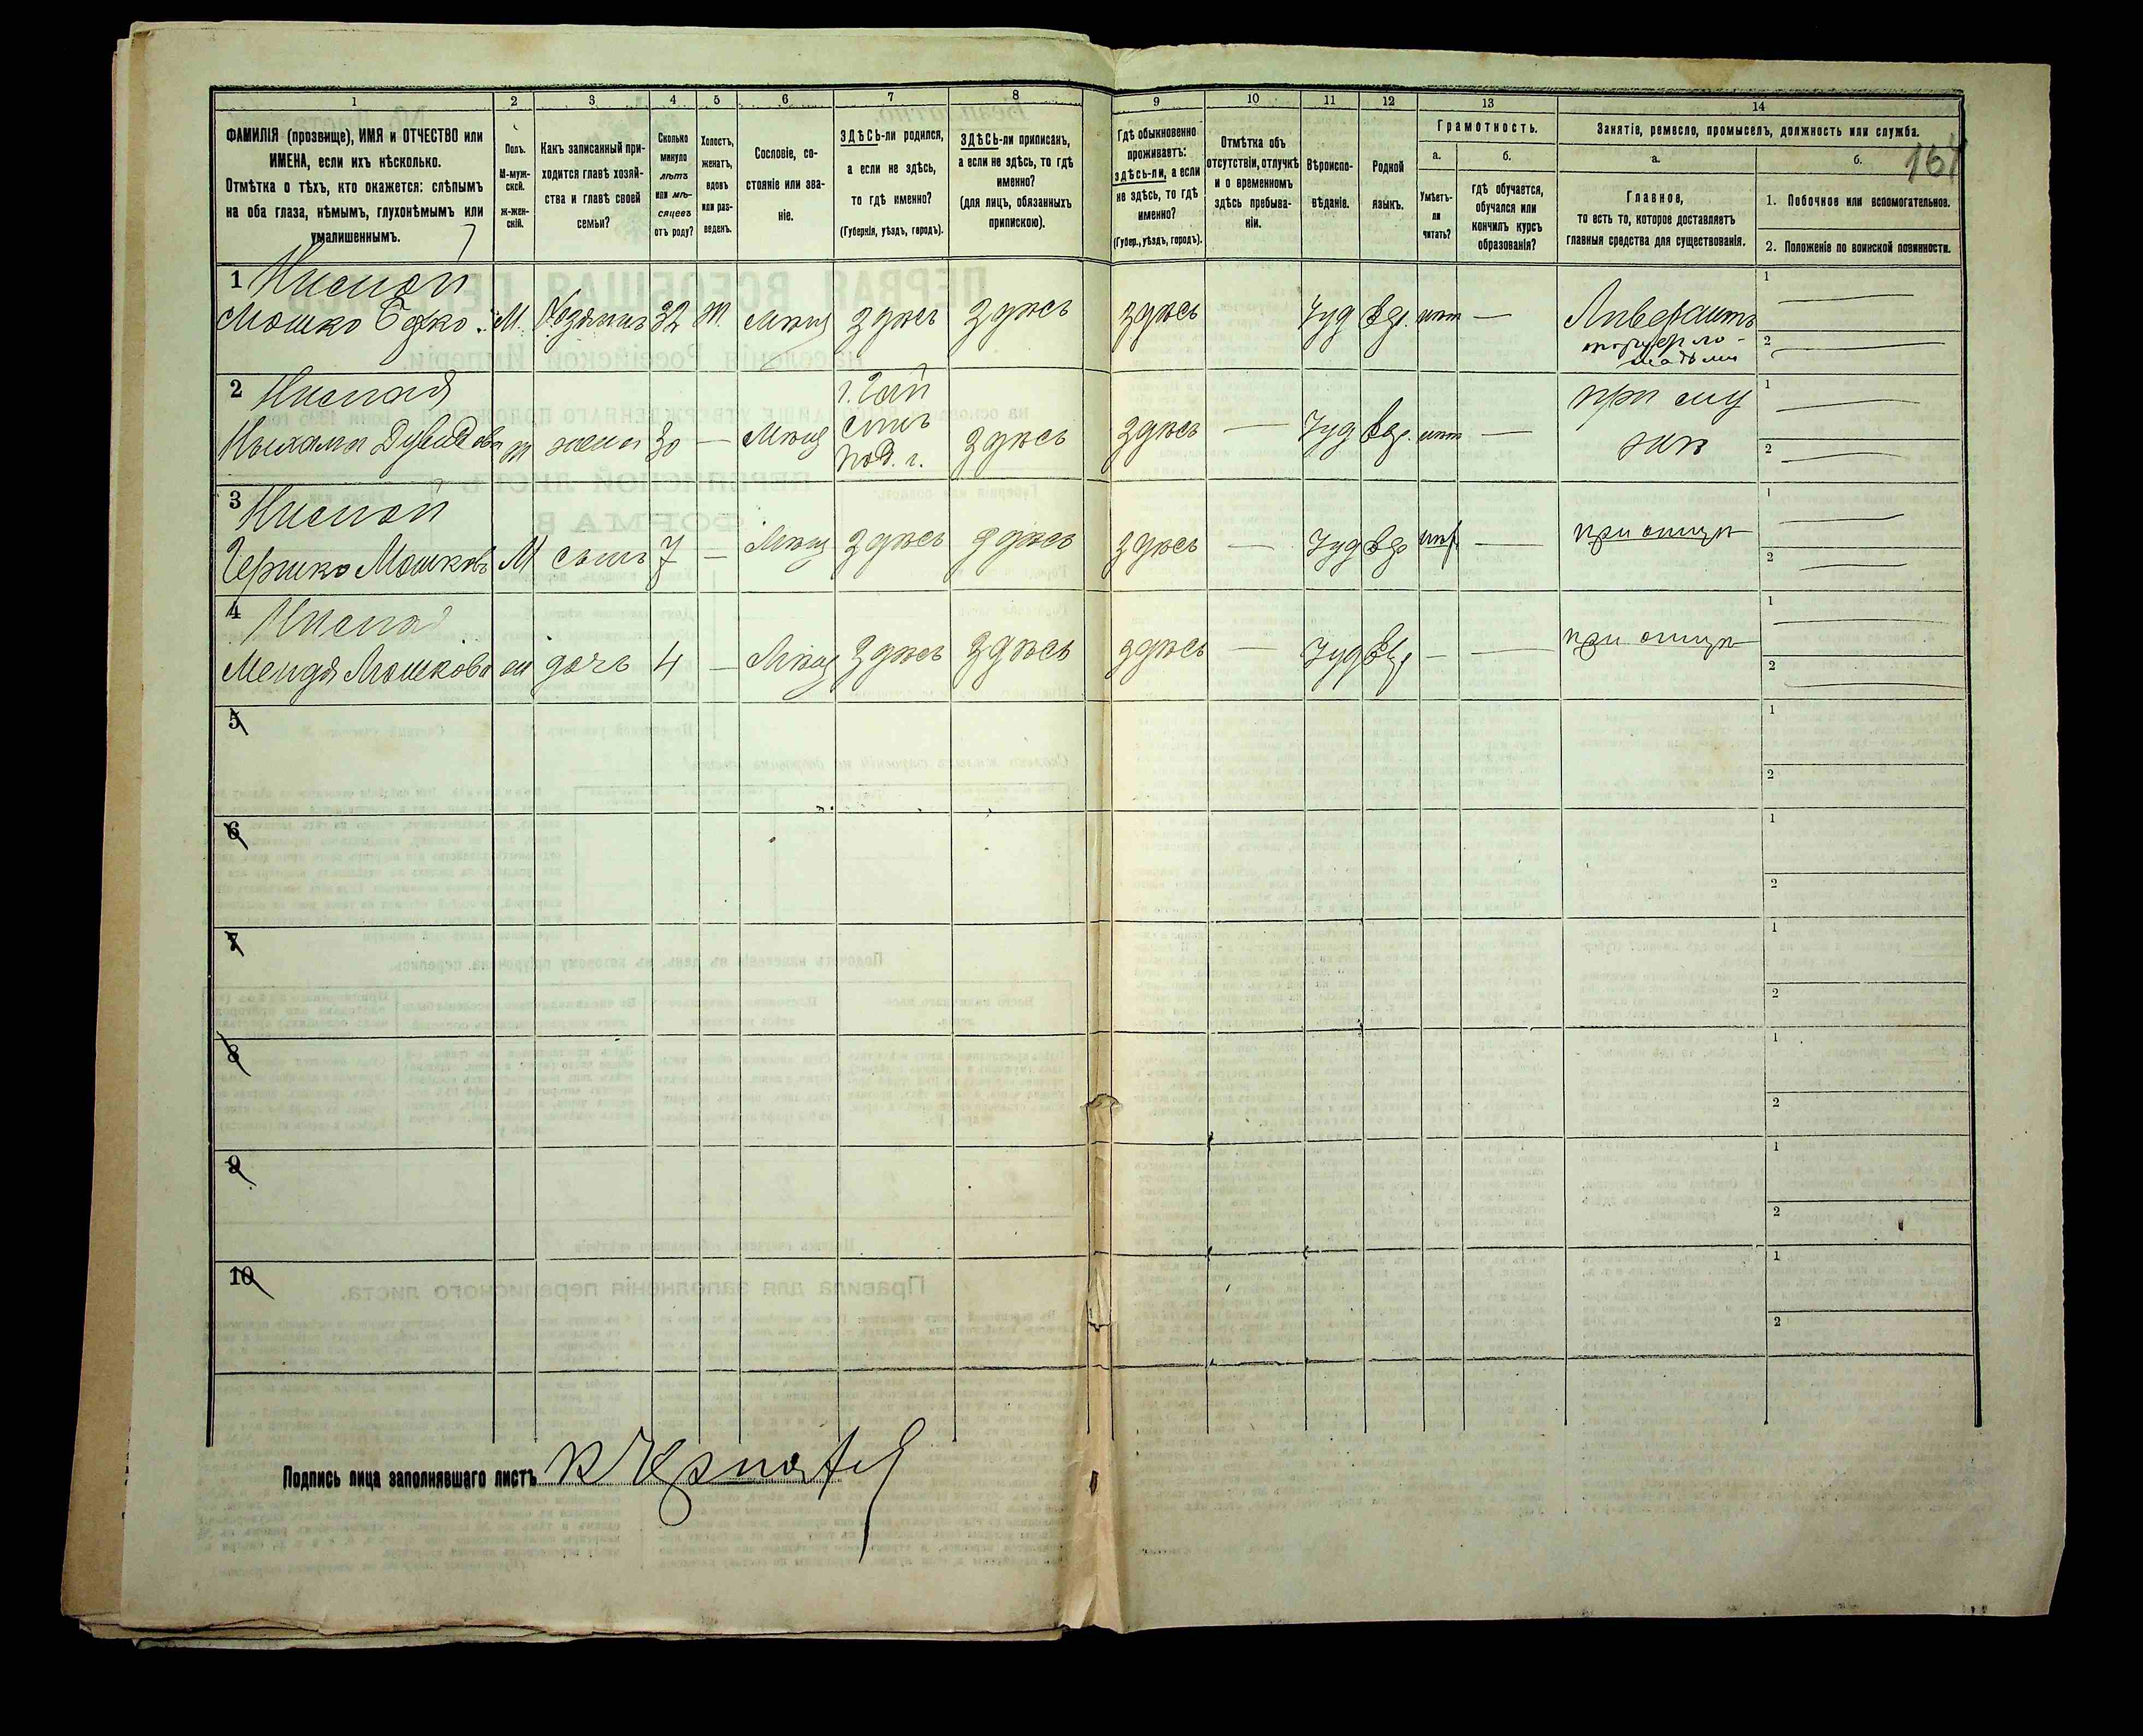 1 2 3 4 5 6 7 8 9 10 11 12 13 14
ФАМИЛІЯ (прозвище), ИМЯ и ОТЧЕСТВО или
ИМЕНА, если ихъ нѣсколько.
Отмѣтка о тѣхъ, кто окажется: слѣпымъ
на оба глаза, нѣмымъ, глухонѣмымъ или
умалишеннымъ.
Полъ.
М-муж-
ской.
ж-жен-
скій.
Какъ записанный при-
ходится главѣ хозяй-
ства и главѣ своей
семьи?
Сколько
минуло
лѣтъ
или мѣ-
сяцевъ
отъ роду?
Холостъ,
женатъ,
вдовъ
или раз-
веденъ.
Сословіе, со-
стояніе или зва-
ніе.
ЗДѢСЬ-ли родился,
а если не здѣсь,
то гдѣ именно?
(Губернія, уѣздъ, городъ).
ЗДѢСЬ-ли приписанъ,
а если не здѣсь, то гдѣ
именно?
(для лицъ, обязанныхъ
припискою).
Гдѣ обыкновенно
проживаетъ:
здѣсь-ли, а если
не здѣсь, то гдѣ
именно?
(Губер., уѣздъ, городъ).
Отмѣтка объ
отсутствіи, отлучкѣ
и о временномъ
здѣсь пребыва-
ніи.
Вѣроиспо-
вѣданіе.
Родной
языкъ.
Грамотность.
а.
Умѣетъ-
ли
читать?
б.
гдѣ обучается,
обучался или
кончилъ курсъ
образованія?
Занятіе, ремесло, промыселъ, должность или служба.
а.
Главное,
то есть то, которое доставляетъ
главныя средства для существованія.
б.
1. Побочное или вспомогательное.
2. Положеніе по воинской повинности.
1
Мошко М. Хозяинъ 32 Ж. Мѣщ здѣсь здѣсь здѣсь Іуд Евр. — 1 —
2 —
2
г. Гай
синъ
Под. г.
ж жена 30 — Мѣщ здѣсь здѣсь — Іуд Евр. — при му
жѣ 1 —
2 —
3
Гершко Мошковъ М сынъ 7 — Мѣщ здѣсь здѣсь здѣсь — Іуд Евр — при отцѣ 1 —
2 —
4
Мошкова дочь 4 — Мѣщ здѣсь здѣсь здѣсь — Іуд Евр — — при отцѣ 1 —
2 —
5 1
2
6 1
2
7 1
2
8 1
2
9 1
2
10 1
2
Подпись лица заполнявшаго листъ